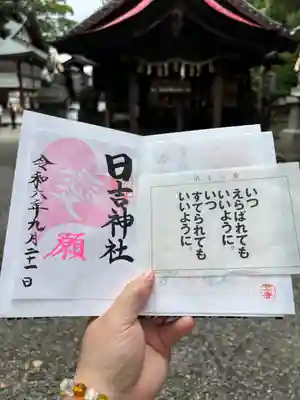 日吉神社
願
令和六年九月二十一日
いつ
えらばれても
いいように。
いつ
すてられても
いいように。